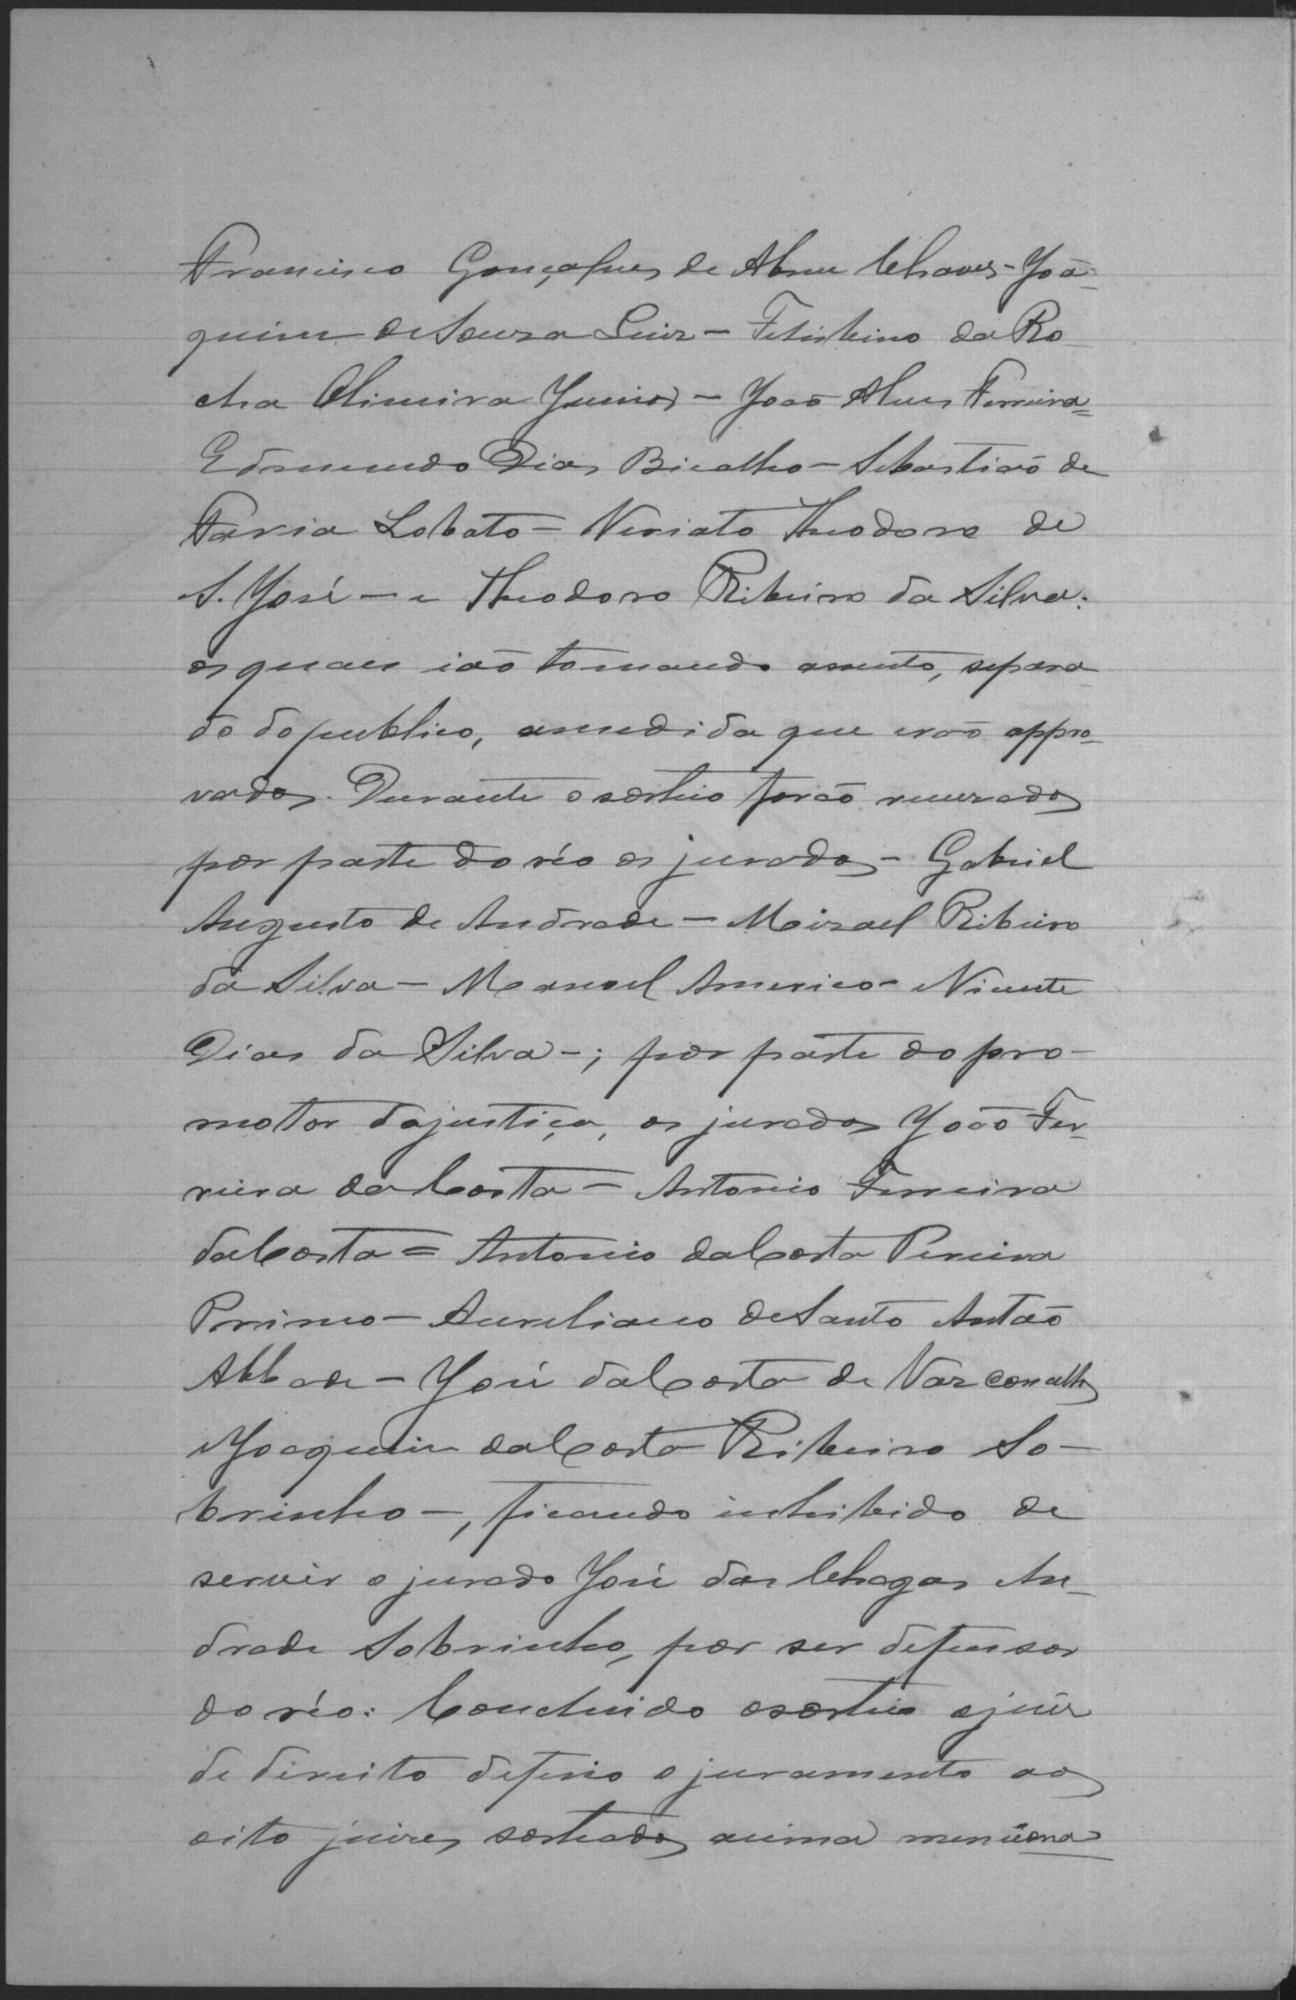 Francisco Gonçalves de Abreu Chaves - Joa-
quim de Souza Luiz - Felisbino da Ro
cha Olimeira Junior - João Alves Ferreira =
Edmundo Dias Bicalho - Sebastião de
Faria Lobato - Viriato Theodoro de
S. José - e Theodoro Ribeiro da Silva:
os quaes irão tomando assento, separa
do do publico, a medida que erão appro-
vados. Durante o sorteio forão recusados
por parte do réo os jurados - Gabriel
Augusto de Andrade - Moizael Ribeiro
da Silva - Manoel Americo - Vicente
Dias da Silva -; por parte do pro-
motor da justiça, os jurados João Fer-
reira da Costa - Antonio Ferreira
da Costa = Antonio da Costa Pereira
Primo - Aureliano de Santo Antão
Abbade - José da Costa de Vasconcellos
Joaquim da Costa Ribeiro So-
brinho -, ficando inhibido de
servir o jurado José das Chagas An-
drade Sobrinho, por ser defensor
do réo: Concluido o sorteio o juiz
de direito deferio o juramento aos
oito juizes sorteados acima menciona